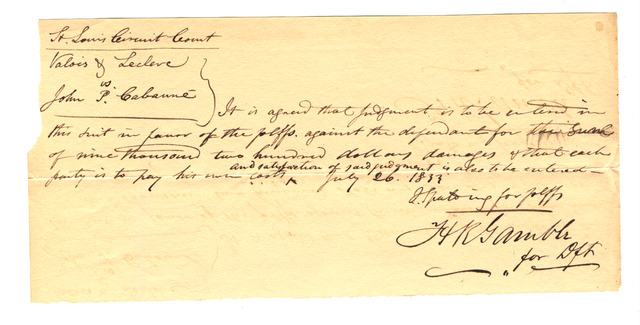 St. Louis Circuit Court
Valois & Leclerc
vs
John P. Cabanné
It is agreed that judgment is to be entered in
this suit in favor of the plffs. against the defendant for
of nine thousand two hundred dollars damages & that each
and satisfaction of said judgment is also to be entered –
party is to pay his own costs July 26. 1833
J. Spalding for plffs
H R Gamble
for Dft